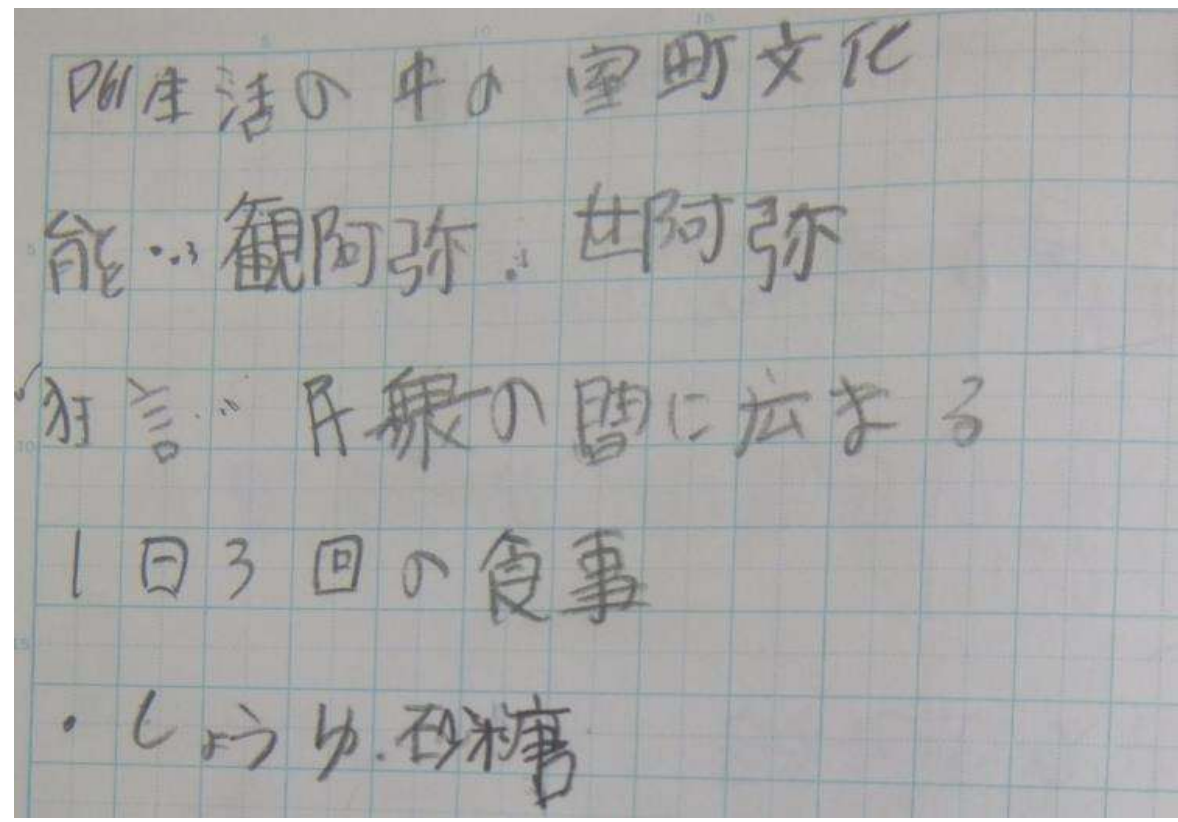 P61生活の中の室町文化
能…観阿弥.世阿弥
狂言…民衆の間に広まる
1日3回の食事
・しょうゆ.砂糖